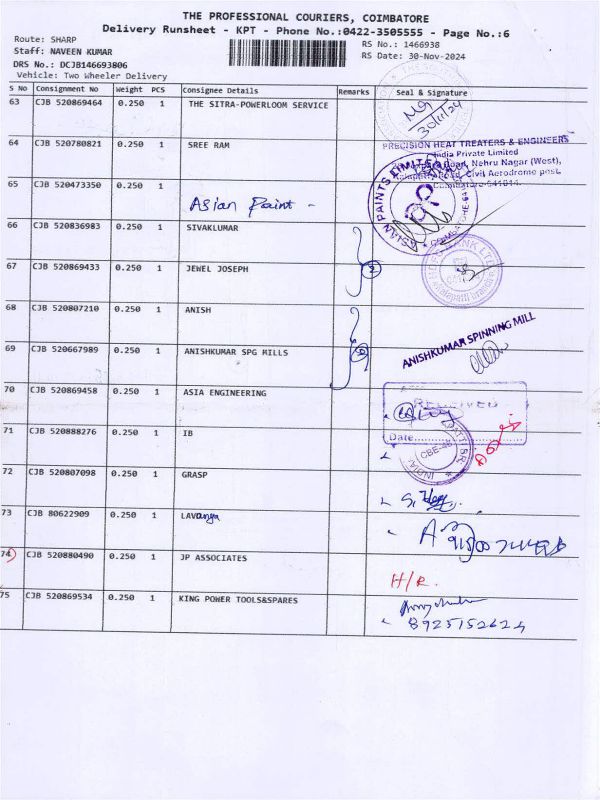 THE PROFESSIONAL COURIERS, COIMBATORE
Delivery Runsheet - KPT - Phone No.:0422-3505555 - Page No.:6
Route: SHARP
RS No.: 1466938
Staff: NAVEEN KUMAR
RS Date: 30-Nov-2024
DRS No.: DCJB146693806
Vehicle: Two Wheeler Delivery
S No Consignment No Weight PCS Consignee Details Remarks Seal & Signature
63 CJB 520869464 0.250 1 THE SITRA-POWERLOOM SERVICE
30/11/24
64 CJB 520780821 0.250 1 SREE RAM
PRECISION HEAT TREATERS & ENGINEERS
India Private Limited
Road, Nehru Nagar (West),
Civil Aerodrome post,
Coimbatore-641014.
65 CJB 520473350 0.250 1
Asian Paint -
ASIAN PAINTS LIMITED
66 CJB 520836983 0.250 1 SIVAKLUMAR
67 CJB 520869433 0.250 1 JEWEL JOSEPH
2
68 CJB 520807210 0.250 1 ANISH
ANISHKUMAR SPINNING MILL
69 CJB 520667989 0.250 1 ANISHKUMAR SPG MILLS
2
70 CJB 520869458 0.250 1 ASIA ENGINEERING
RECEIVED
Date
71 CJB 520888276 0.250 1 IB
CBE-48
72 CJB 520807098 0.250 1 GRASP
73 CJB 80622909 0.250 1 LAVanya
74 CJB 520880490 0.250 1 JP ASSOCIATES
H/R.
75 CJB 520869534 0.250 1 KING POWER TOOLS&SPARES
8925152624